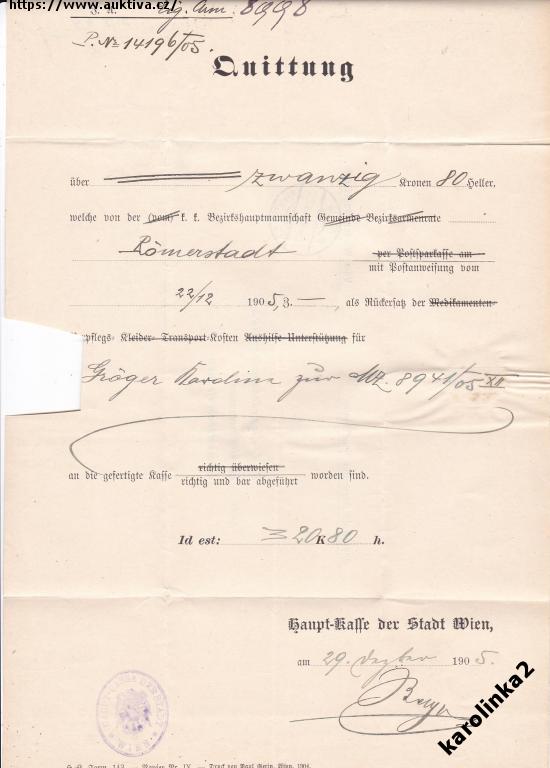 https://www.auktiva.cz/
8998
P. No 14196/05.
Quittung
über zwanzig Kronen 80 Heller,
welche von der (vom) k. k. Bezirkshauptmannschaft Gemeinde Bezirksarmenrate
Römerstadt per Postsparkasse am
mit Postanweisung vom
22/12 1905, Z. — , als Rückersatz der Medikamenten-
pflegs- Kleider- Transport-Kosten Aushilfe-Unterstützung für
Gröger Karolina zur MZ. 8941/05 XII
an die gefertigte Kasse richtig überwiesen
richtig und bar abgeführt worden sind.
Id est: 20 K 80 h.
Haupt-Kasse der Stadt Wien,
am 29. Dezber 1905.
karolinka2